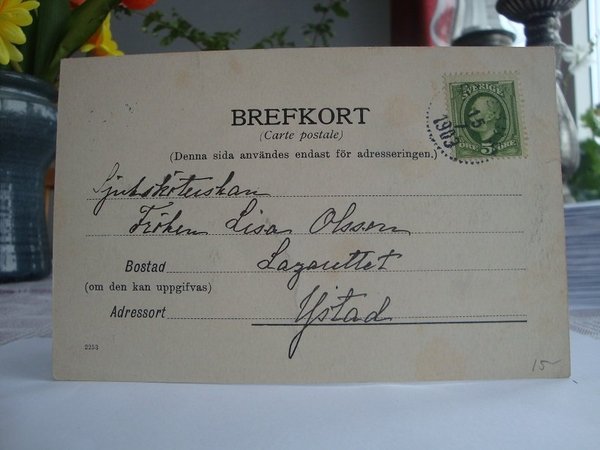 BREFKORT
(Carte postale)
(Denna sida användes endast för adresseringen.)
SVERIGE
5
ÖRE ÖRE
15
1903
Sjuksköterskan
Fröken Lisa Olsson
Bostad Lazarettet
(om den kan uppgifvas)
Adressort Ystad
2253
15-